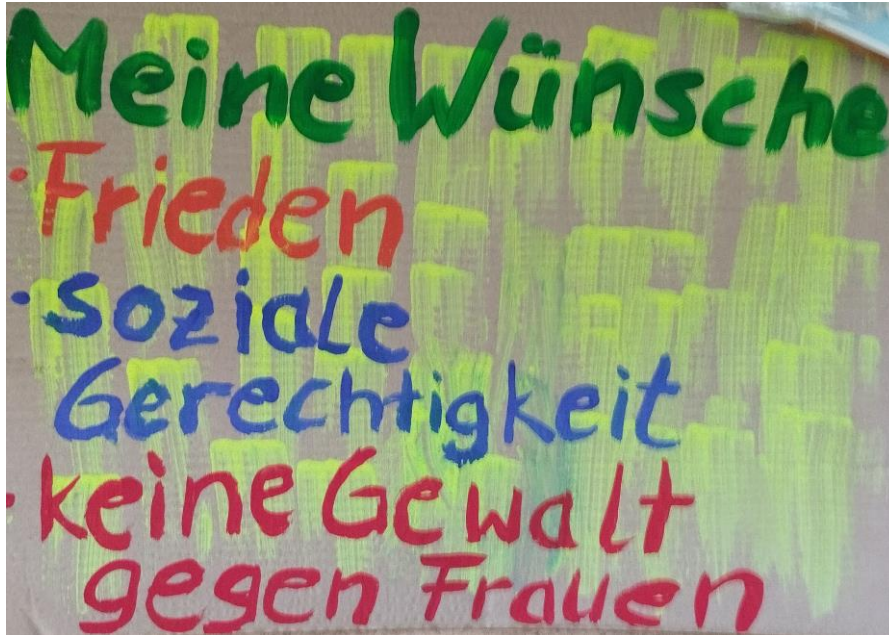 Meine Wünsche
· Frieden
· soziale
Gerechtigkeit
· keine Gewalt
gegen Frauen